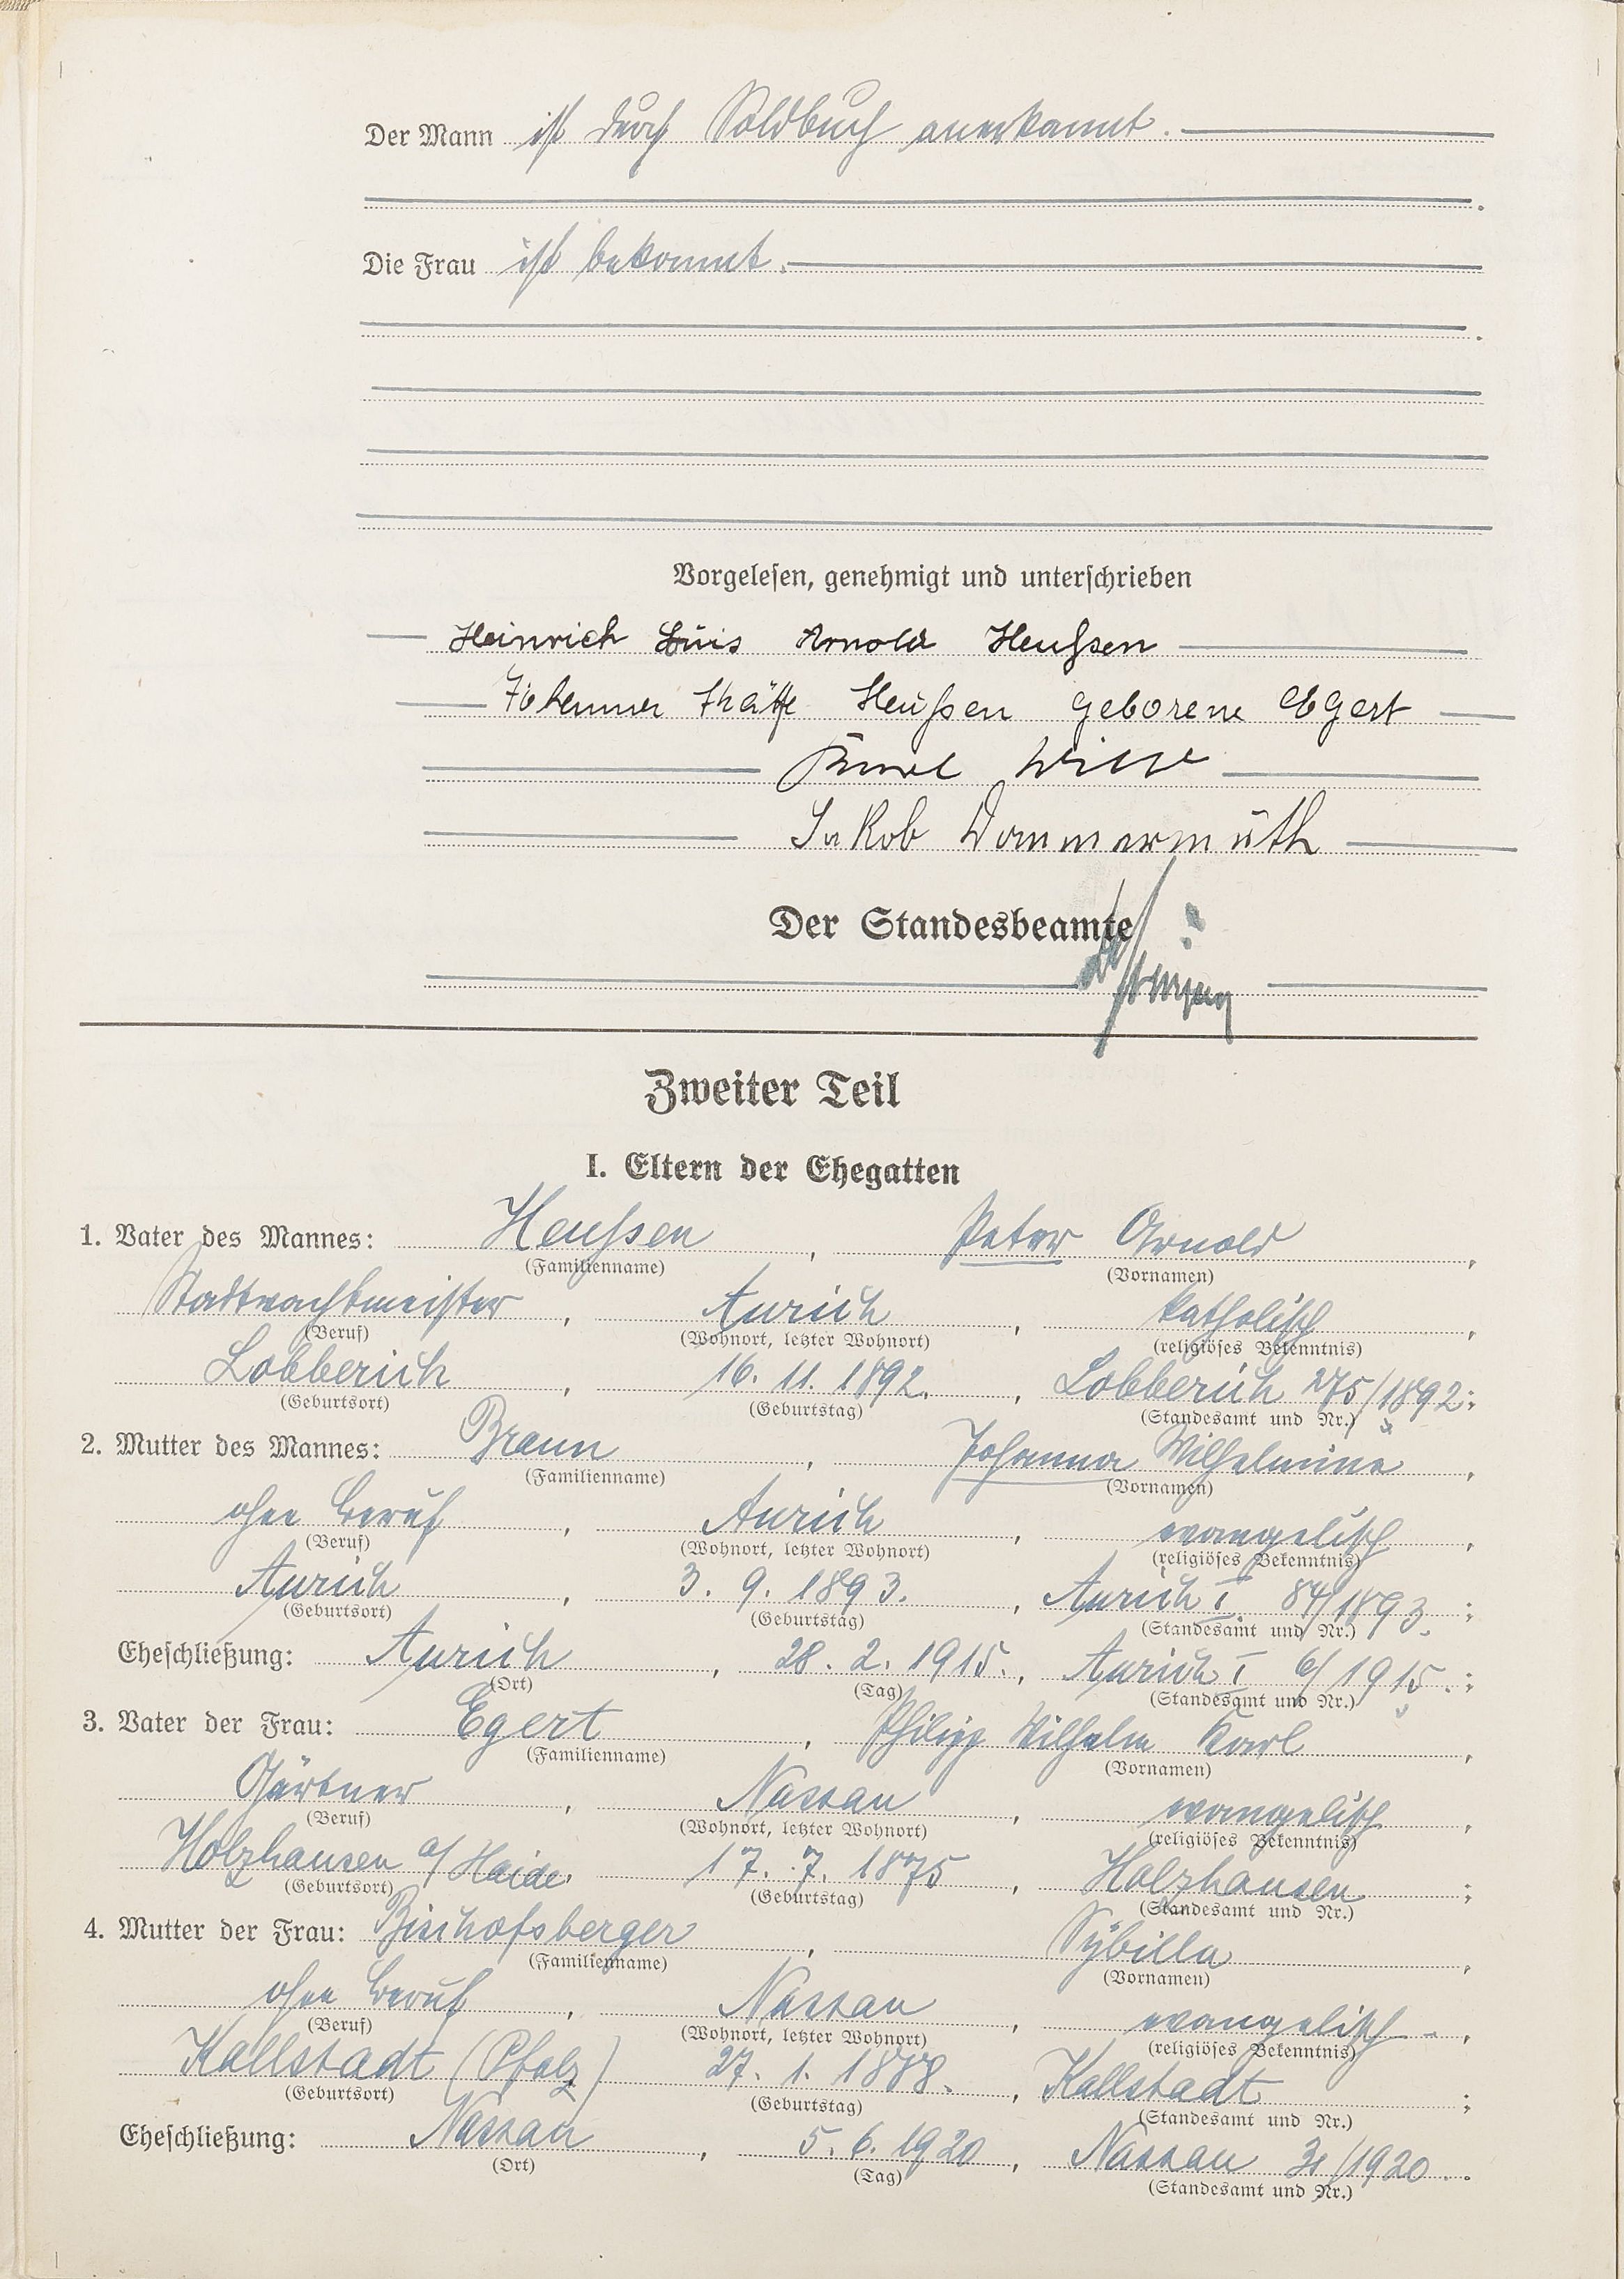 Der Mann ist durch Soldbuch anerkannt.
Die Frau ist bekannt.
Vorgelesen, genehmigt und unterschrieben
Heinrich Luis Arnold Heußen
Johanna Käthe Heußen geborene Egert
Karl
Jakob Dommermuth
Der Standesbeamte
Zweiter Teil
I. Eltern der Ehegatten
1. Vater des Mannes: Heußen, Peter Arnold,
(Familienname) (Vornamen)
Stadtwachtmeister, Aurich, katholisch,
(Beruf) (Wohnort, letzter Wohnort) (religiöses Bekenntnis)
Lobberich, 16. 11. 1892., Lobberich 275/1892;
(Geburtsort) (Geburtstag) (Standesamt und Nr.)
2. Mutter des Mannes: Braun, Johanna Wilhelmine,
(Familienname) (Vornamen)
ohne Beruf, Aurich, evangelisch,
(Beruf) (Wohnort, letzter Wohnort) (religiöses Bekenntnis)
Aurich, 3. 9. 1893., Aurich I. 84/1893.;
(Geburtsort) (Geburtstag) (Standesamt und Nr.)
Eheschließung: Aurich, 28. 2. 1915., Aurich I 6/1915.;
(Ort) (Tag) (Standesamt und Nr.)
3. Vater der Frau: Egert, Philipp Wilhelm Karl,
(Familienname) (Vornamen)
Gärtner, Nassau, evangelisch,
(Beruf) (Wohnort, letzter Wohnort) (religiöses Bekenntnis)
Holzhausen a/Haide, 17. 7. 1875, Holzhausen;
(Geburtsort) (Geburtstag) (Standesamt und Nr.)
4. Mutter der Frau: Bischofsberger, Sybilla,
(Familienname) (Vornamen)
ohne Beruf, Nassau, evangelisch,
(Beruf) (Wohnort, letzter Wohnort) (religiöses Bekenntnis)
Kallstadt (Pfalz) 27. 1. 1888., Kallstadt;
(Geburtsort) (Geburtstag) (Standesamt und Nr.)
Eheschließung: Nassau, 5. 6. 1920, Nassau 31/1920.
(Ort) (Tag) (Standesamt und Nr.)